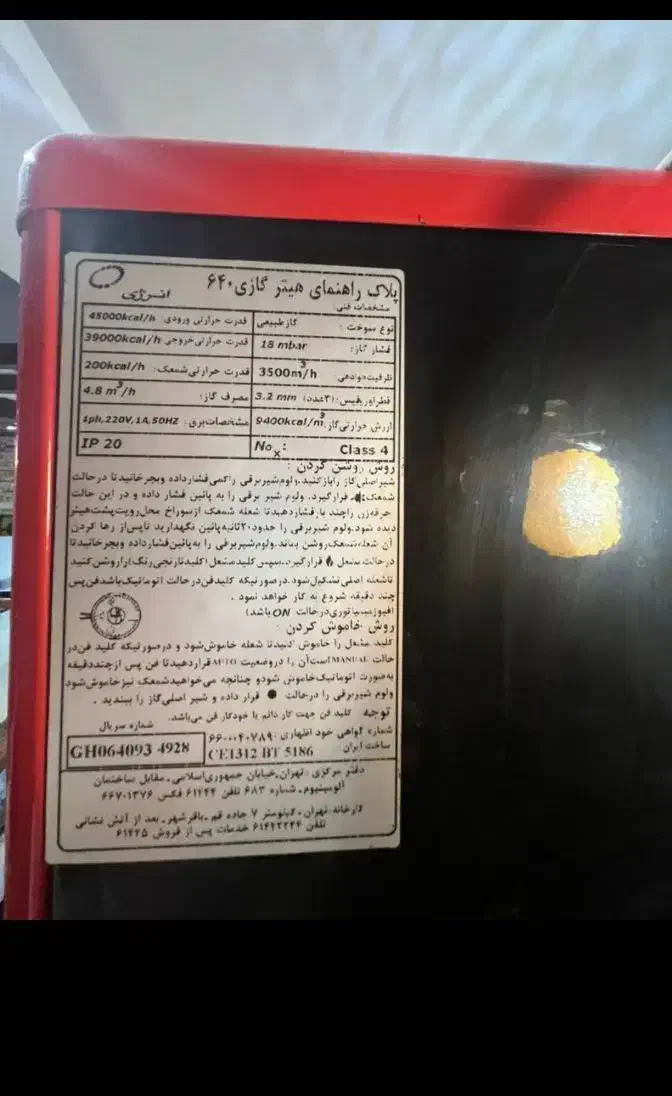 پلاک راهنمای هیتر گازی ۶۴۰
انرژی
مشخصات فنی:
نوع سوخت : گاز طبیعی قدرت حرارتی ورودی: 45000kcal/h
فشار گاز: 18 mbar قدرت حرارتی خروجی: 39000kcal/h
ظرفیت هوادهی: 3500m³/h قدرت حرارتی شمعک: 200kcal/h
قطر اوریفیس:(۳عدد) 3.2 mm مصرف گاز: 4.8 m³/h
ارزش حرارتی گاز: 9400kcal/m³ مشخصات برق: 1ph,220V,1A,50HZ
Class 4 Noₓ: IP 20
روش روشن کردن :
شیر اصلی گاز را باز کنید. ولوم شیر برقی را کمی فشار داده و بچرخانید تا در حالت
شمعک قرار گیرد. ولوم شیر برقی را به پائین فشار داده و در این حالت
جرقه زن را چند بار فشار دهید تا شعله شمعک از سوراخ محل رویت پشت هیتر
دیده شود. ولوم شیر برقی را حدود ۲۰ ثانیه پائین نگهدارید تا پس از رها کردن
آن شعله شمعک روشن بماند. ولوم شیر برقی را به پائین فشار داده و بچرخانید تا
در حالت مشعل قرار گیرد. سپس کلید مشعل (کلید نارنجی رنگ) را روشن کنید
تا شعله اصلی تشکیل شود. در صورتیکه کلید فن در حالت اتوماتیک باشد فن پس
چند دقیقه شروع به کار خواهد نمود .
(فیوز مینیاتوری در حالت ON باشد)
روش خاموش کردن :
کلید مشعل را خاموش کنید تا شعله خاموش شود و در صورتیکه کلید فن در
حالت MANUAL است آن را در وضعیت AUTO قرار دهید تا فن پس از چند دقیقه
به صورت اتوماتیک خاموش شود و چنانچه می خواهید شمعک نیز خاموش شود
ولوم شیر برقی را در حالت ● قرار داده و شیر اصلی گاز را ببندید .
توجه کلید فن جهت کار دائم یا خودکار فن می‌باشد.
شماره گواهی خود اظهاری : ۶۶۰۰۰۴۰۷۸۹
شماره سریال
ساخت ایران CE1312 BT 5186
GH064093 4928
دفتر مرکزی : تهران، خیابان جمهوری اسلامی، مقابل ساختمان
آلومینیوم، شماره ۶۸۳ تلفن ۶۱۴۴۴ فکس ۶۶۷۰۱۳۷۶
کارخانه: تهران، کیلومتر ۷ جاده قم، باقرشهر، بعد از آتش نشانی
تلفن ۶۱۴۴۲۲۴۴ خدمات پس از فروش ۶۱۴۲۵